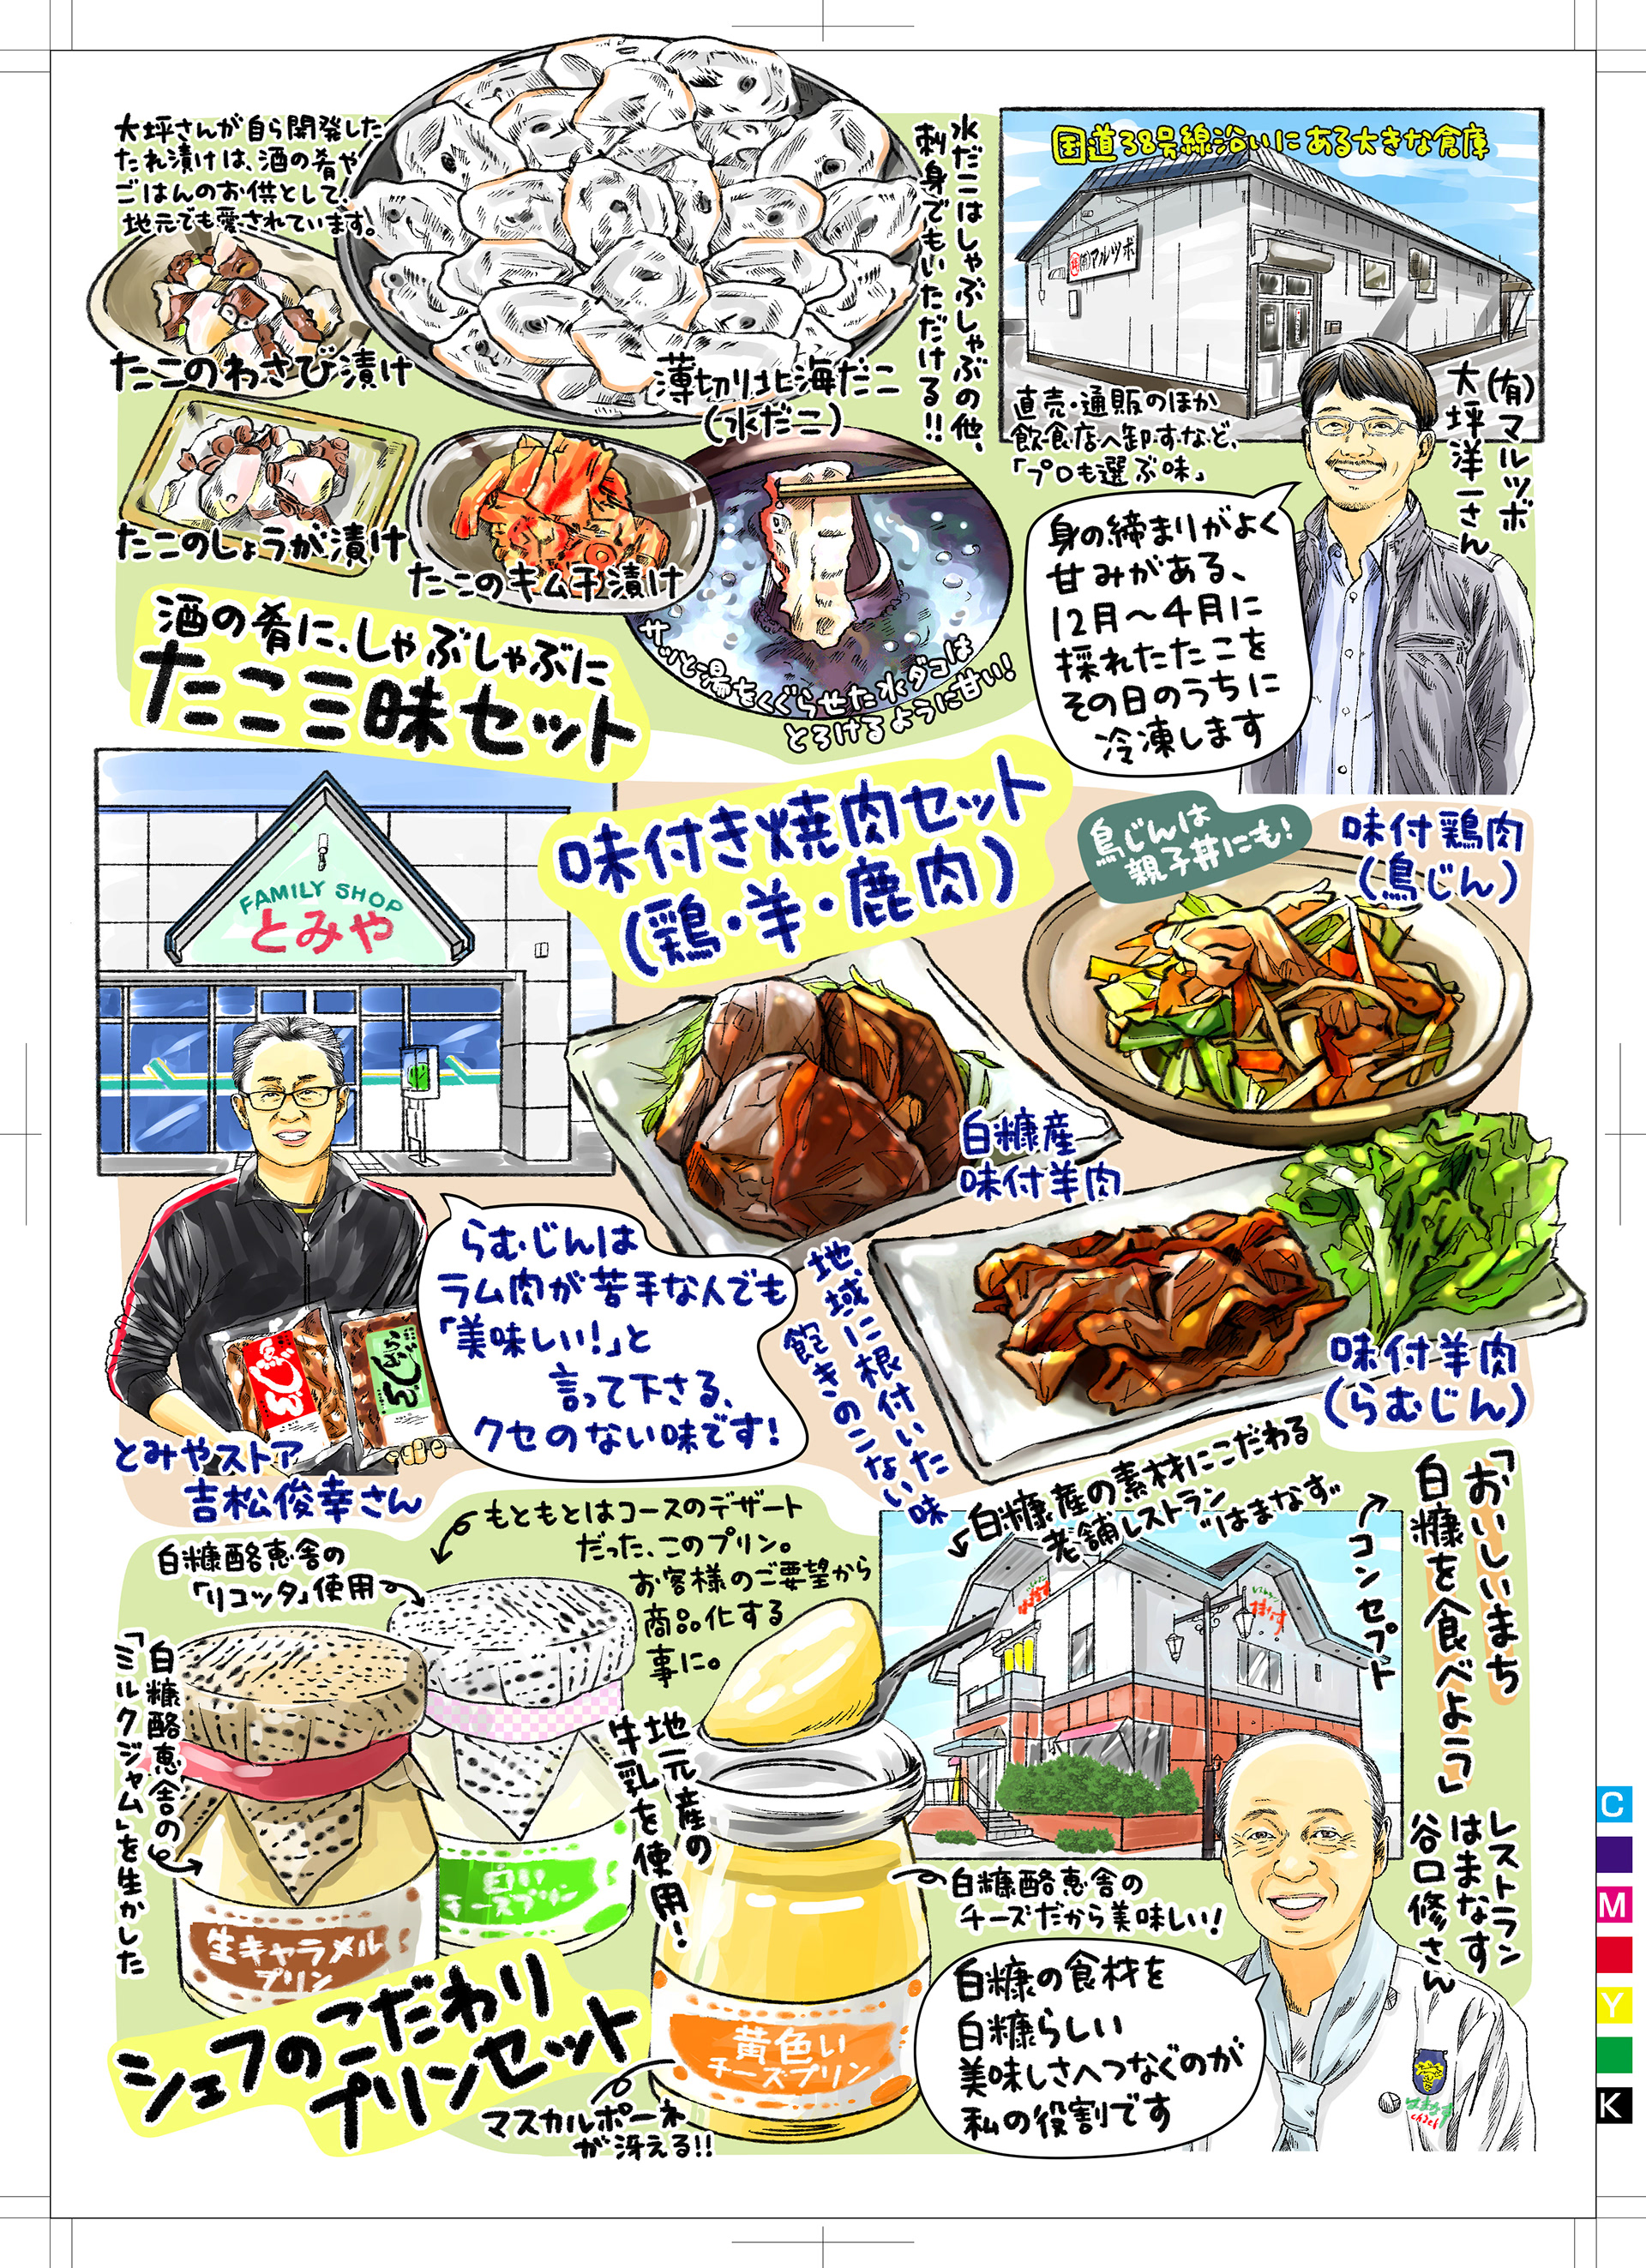 大坪さんが自ら開発した
たれ漬けは、酒の肴や
ごはんのお供として、
地元でも愛されています。
たこのわさび漬け
たこのしょうが漬け
たこのキムチ漬け
薄切り北海だこ
(水だこ)
水だこはしゃぶしゃぶの他、
刺身でもいただける!!
サッと湯をくぐらせた水ダコは
とろけるように甘い!
酒の肴に、しゃぶしゃぶに
たこ三昧セット
国道38号線沿いにある大きな倉庫
(有)マルツボ
直売・通販のほか
飲食店へ卸すなど、
「プロも選ぶ味」
(有)マルツボ
大坪洋一さん
身の締まりがよく
甘みがある、
12月〜4月に
採れたたこを
その日のうちに
冷凍します
FAMILY SHOP
とみや
味付き焼肉セット
(鶏・羊・鹿肉)
鳥じんは
親子丼にも!
味付鶏肉
(鳥じん)
白糠産
味付羊肉
味付羊肉
(らむじん)
地域に根付いた
飽きのこない味
らむじんは
ラム肉が苦手な人でも
「美味しい!」と
言って下さる、
クセのない味です!
鳥じん
らむじん
とみやストア
吉松俊幸さん
もともとはコースのデザート
だった、このプリン。
お客様のご要望から
商品化する
事に。
白糠酪恵舎の
「リコッタ」使用
白糠酪恵舎の
「ミルクジャム」を生かした
白い
チーズプリン
生キャラメル
プリン
地元産の
牛乳を使用!
黄色い
チーズプリン
マスカルポーネ
が冴える!!
シェフのこだわり
プリンセット
白糠産の素材にこだわる
老舗レストラン
"はまなす"
コンセプト
「おいしいまち
白糠を食べよう」
はまなす
はまなす
白糠酪恵舎の
チーズだから美味しい!
レストラン
はまなす
谷口修さん
白糠の食材を
白糠らしい
美味しさへつなぐのが
私の役割です
はまなす
chef
C
M
Y
K